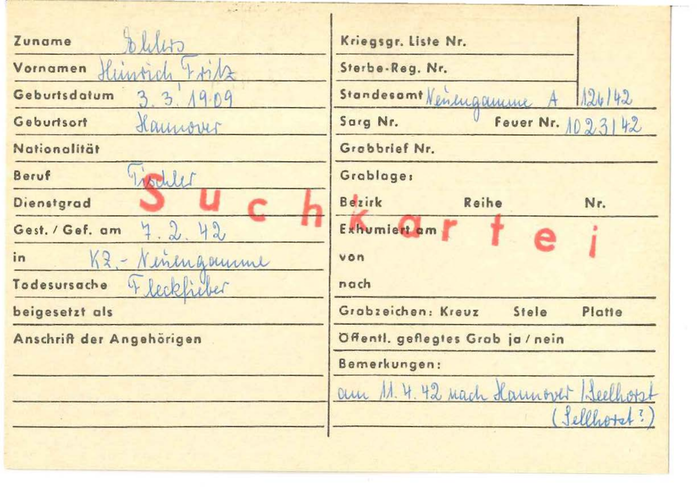 Zuname Ehlers
Vornamen Heinrich Fritz
Geburtsdatum 3.3.1909
Geburtsort Hannover
Nationalität
Beruf Tischler
Dienstgrad
Gest./Gef. am 7.2.42
in KZ.-Neuengamme
Todesursache Fleckfieber
beigesetzt als
Anschrift der Angehörigen
Suchkartei
Kriegsgr. Liste Nr.
Sterbe-Reg. Nr.
Standesamt Neuengamme A 126/42
Sarg Nr. Feuer Nr. 1023/42
Grabbrief Nr.
Grablage:
Bezirk Reihe Nr.
Exhumiert am
von
nach
Grabzeichen: Kreuz Stele Platte
Öffentl. geflegtes Grab ja/nein
Bemerkungen:
am 11.4.42 nach Hannover/Seelhorst
(Sellhorst?)